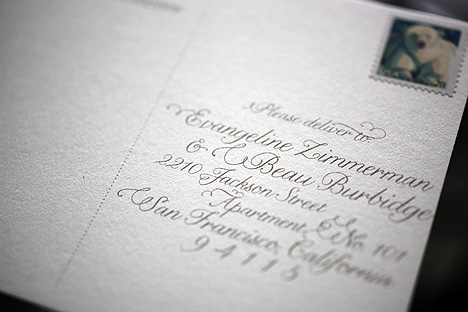 Please deliver to:
Evangeline Zimmerman
& Beau Burbidge
2210 Jackson Street
Apartment No. 101
San Francisco, California
94115